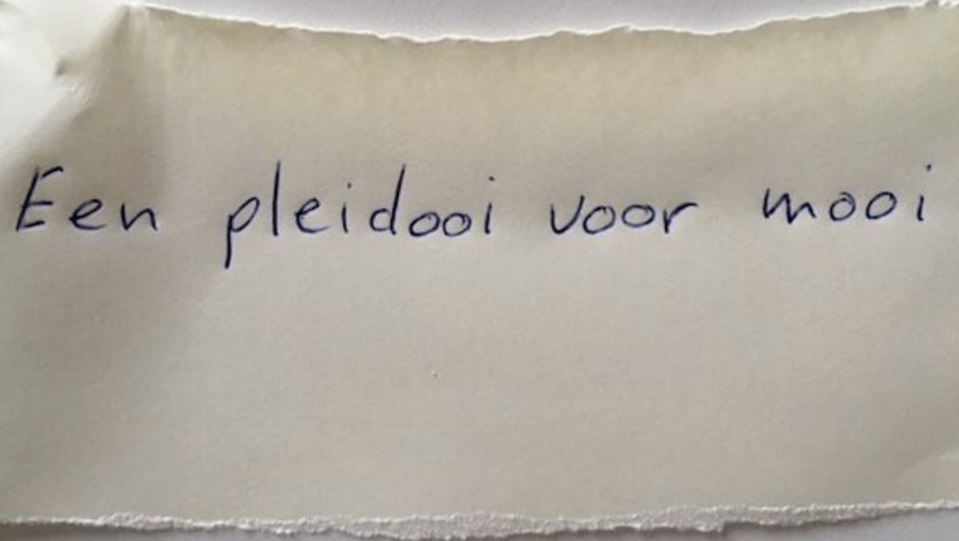 Een pleidooi voor mooi